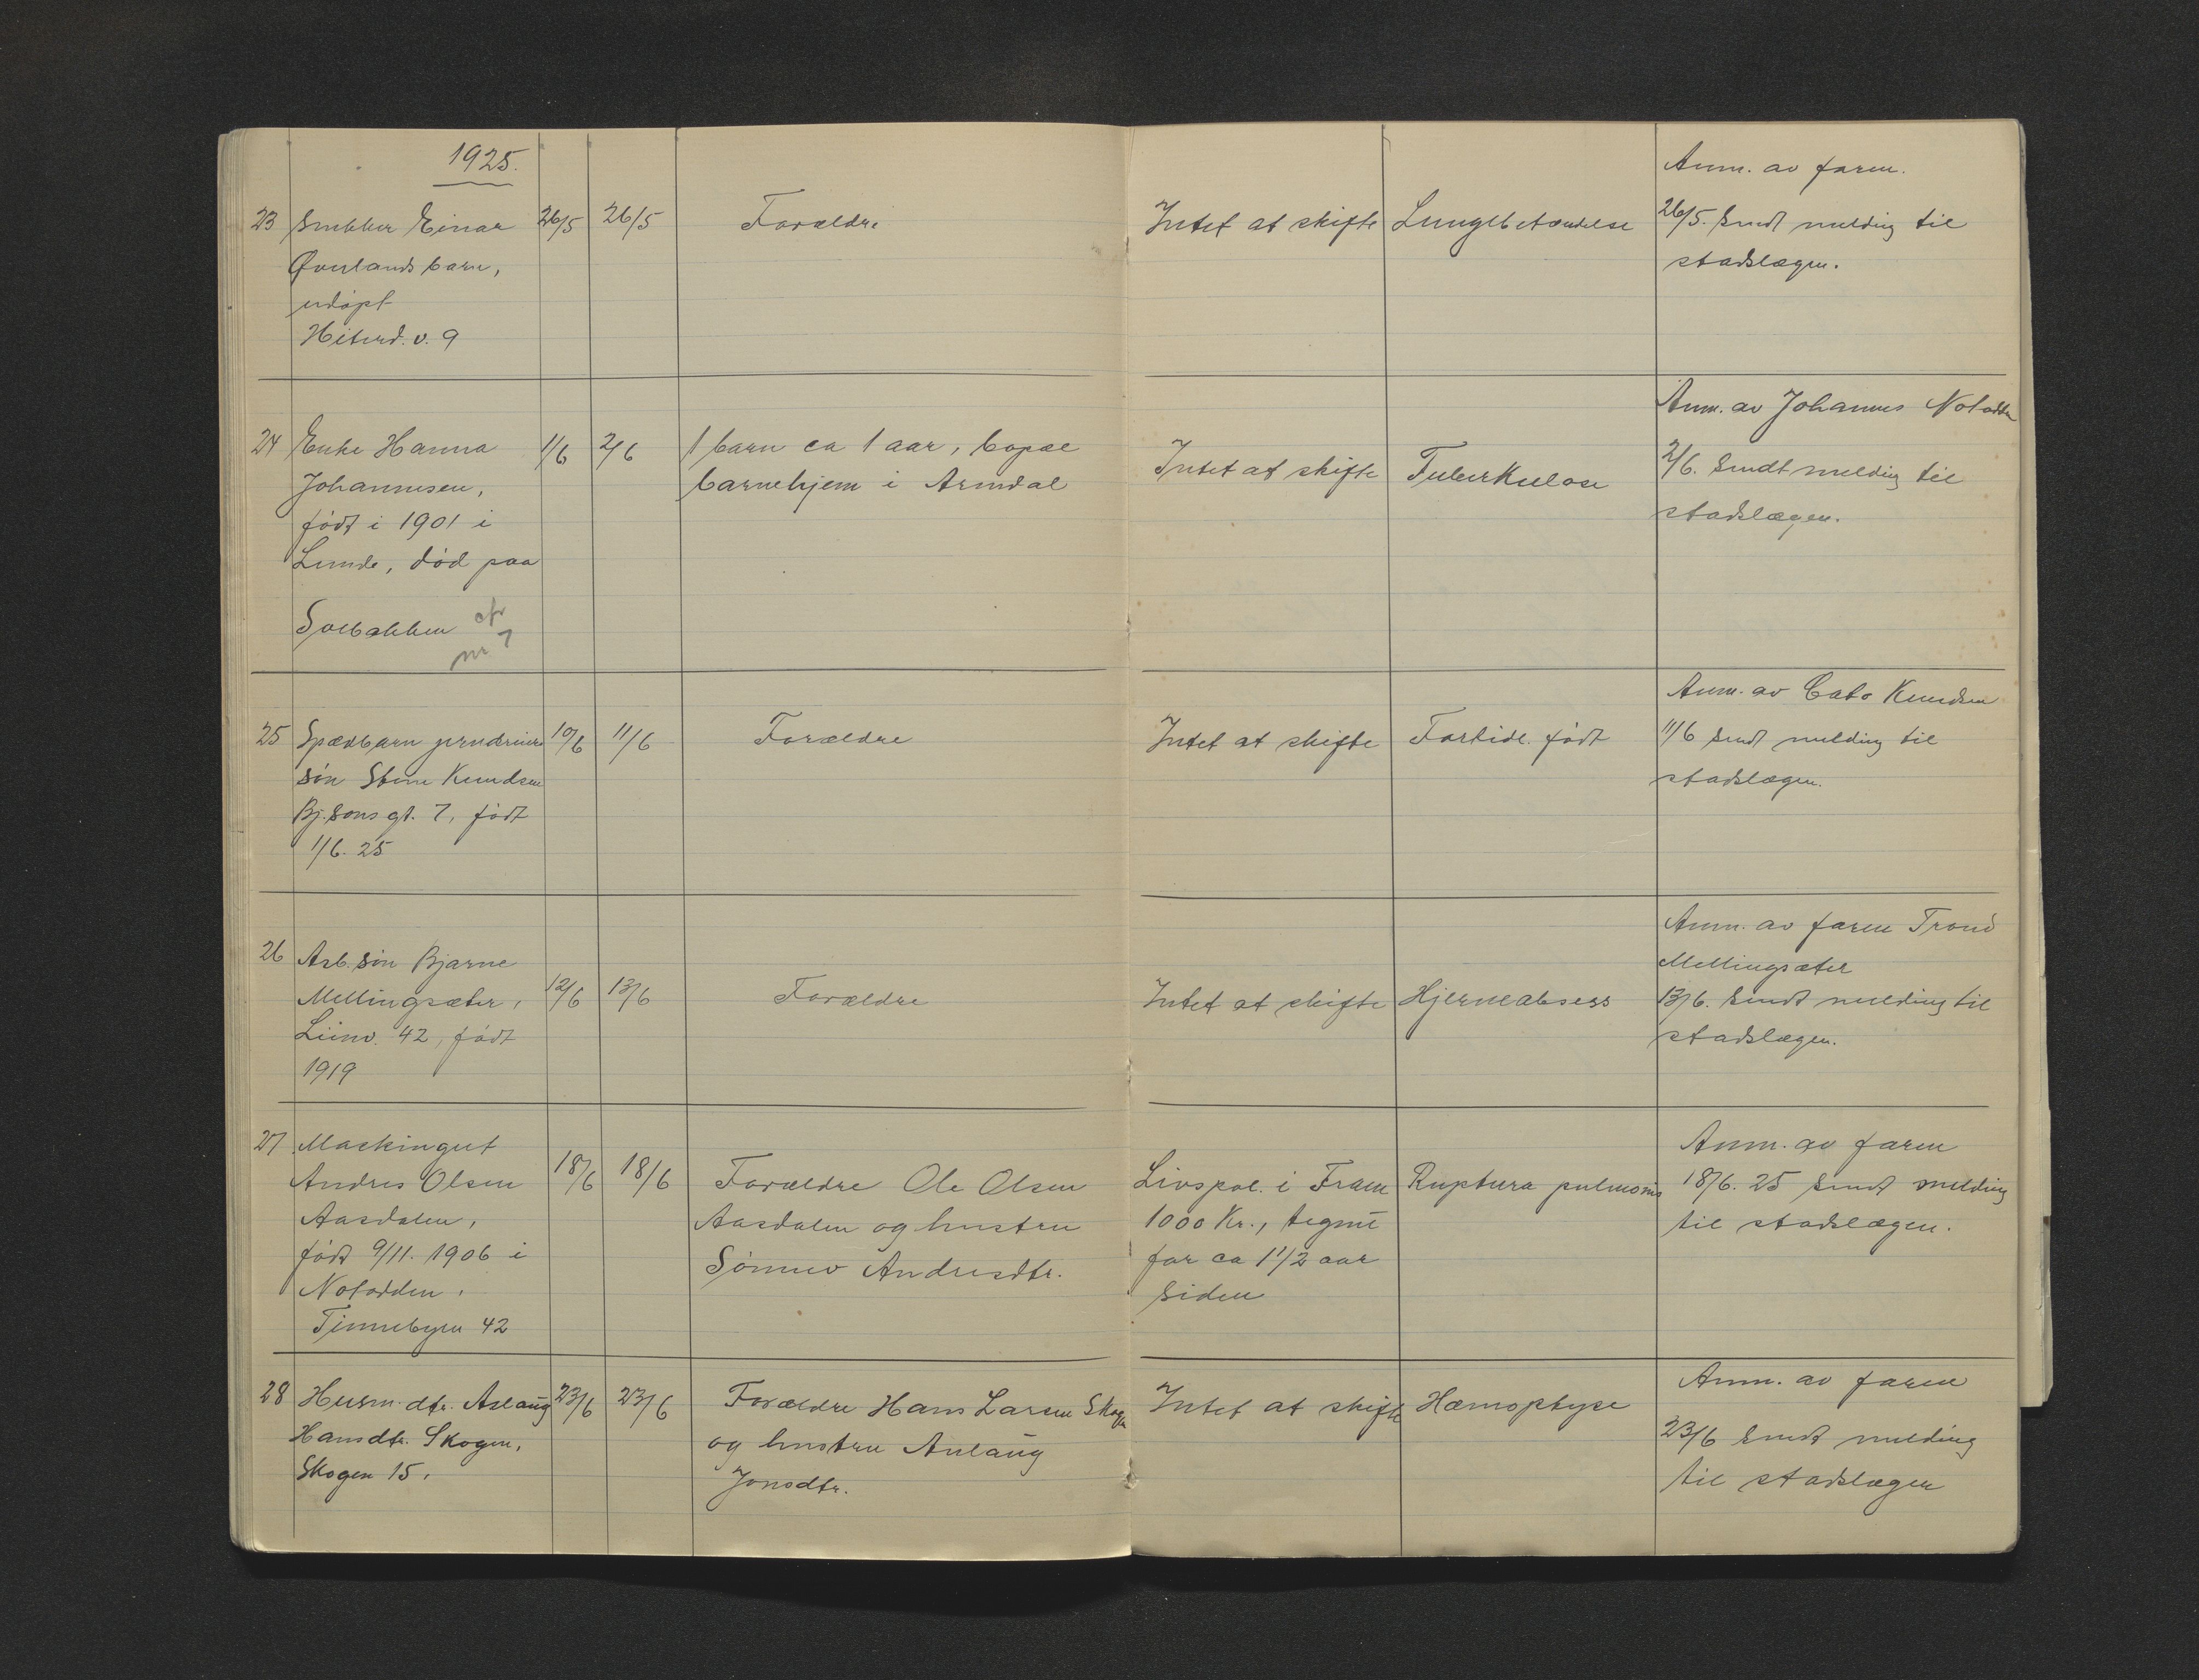 1925.
23
Snekker Einar
Øverlands barn,
udøpt
Hiterd. v. 9
26/5
26/5
Forældre
Intet at skifte
Lungebetændelse
Anm. av faren.
26/5. Sendt melding til
stadslægen.
24
Enke Hanna
Johannesen,
født i 1901 i
Lunde, død paa
Solbakken
cfr
nr. 7
1/6
2/6
1 barn ca 1 aar, bopæl
barnehjem i Arendal
Intet at skifte
Tuberkulose
Anm. av Johannes Notodden
2/6. Sendt melding til
stadslægen.
25
Spædbarn jerndreier
søn Sten Knudsen
Bj.sons gt. 7, født
1/6. 25
10/6
11/6
Forældre
Intet at skifte
Fortidl. født
Anm. av Cato Knudsen
11/6 Sendt melding til
stadslægen.
26
Arb. søn Bjarne
Mellingsæter,
Liinv. 42, født
1919
12/6
13/6
Forældre
Intet at skifte
Hjerneabsess
Anm. av faren Trond
Mellingsæter
13/6. Sendt melding til
stadslægen.
27
Maskingut
Andres Olsen
Aasdalen,
født 9/11. 1906 i
Notodden,
Tinnebyen 42
18/6
18/6
Forældre Ole Olsen
Aasdalen og hustru
Sønnev Andresdtr.
Livspol. i Fram
1000 Kr., tegnet
for ca 1 1/2 aar
siden
Ruptura pulmonis
Anm. av faren
18/6. 25 Sendt melding
til stadslægen.
28
Husm. dtr. Aslaug
Hansdtr. Skogen,
Skogen 15.
23/6
23/6
Forældre Hans Larsen Skogen
og hustru Anlaug
Jonsdtr.
Intet at skifte
Hæmoptyse
Anm. av faren
23/6 Sendt melding
til stadslægen